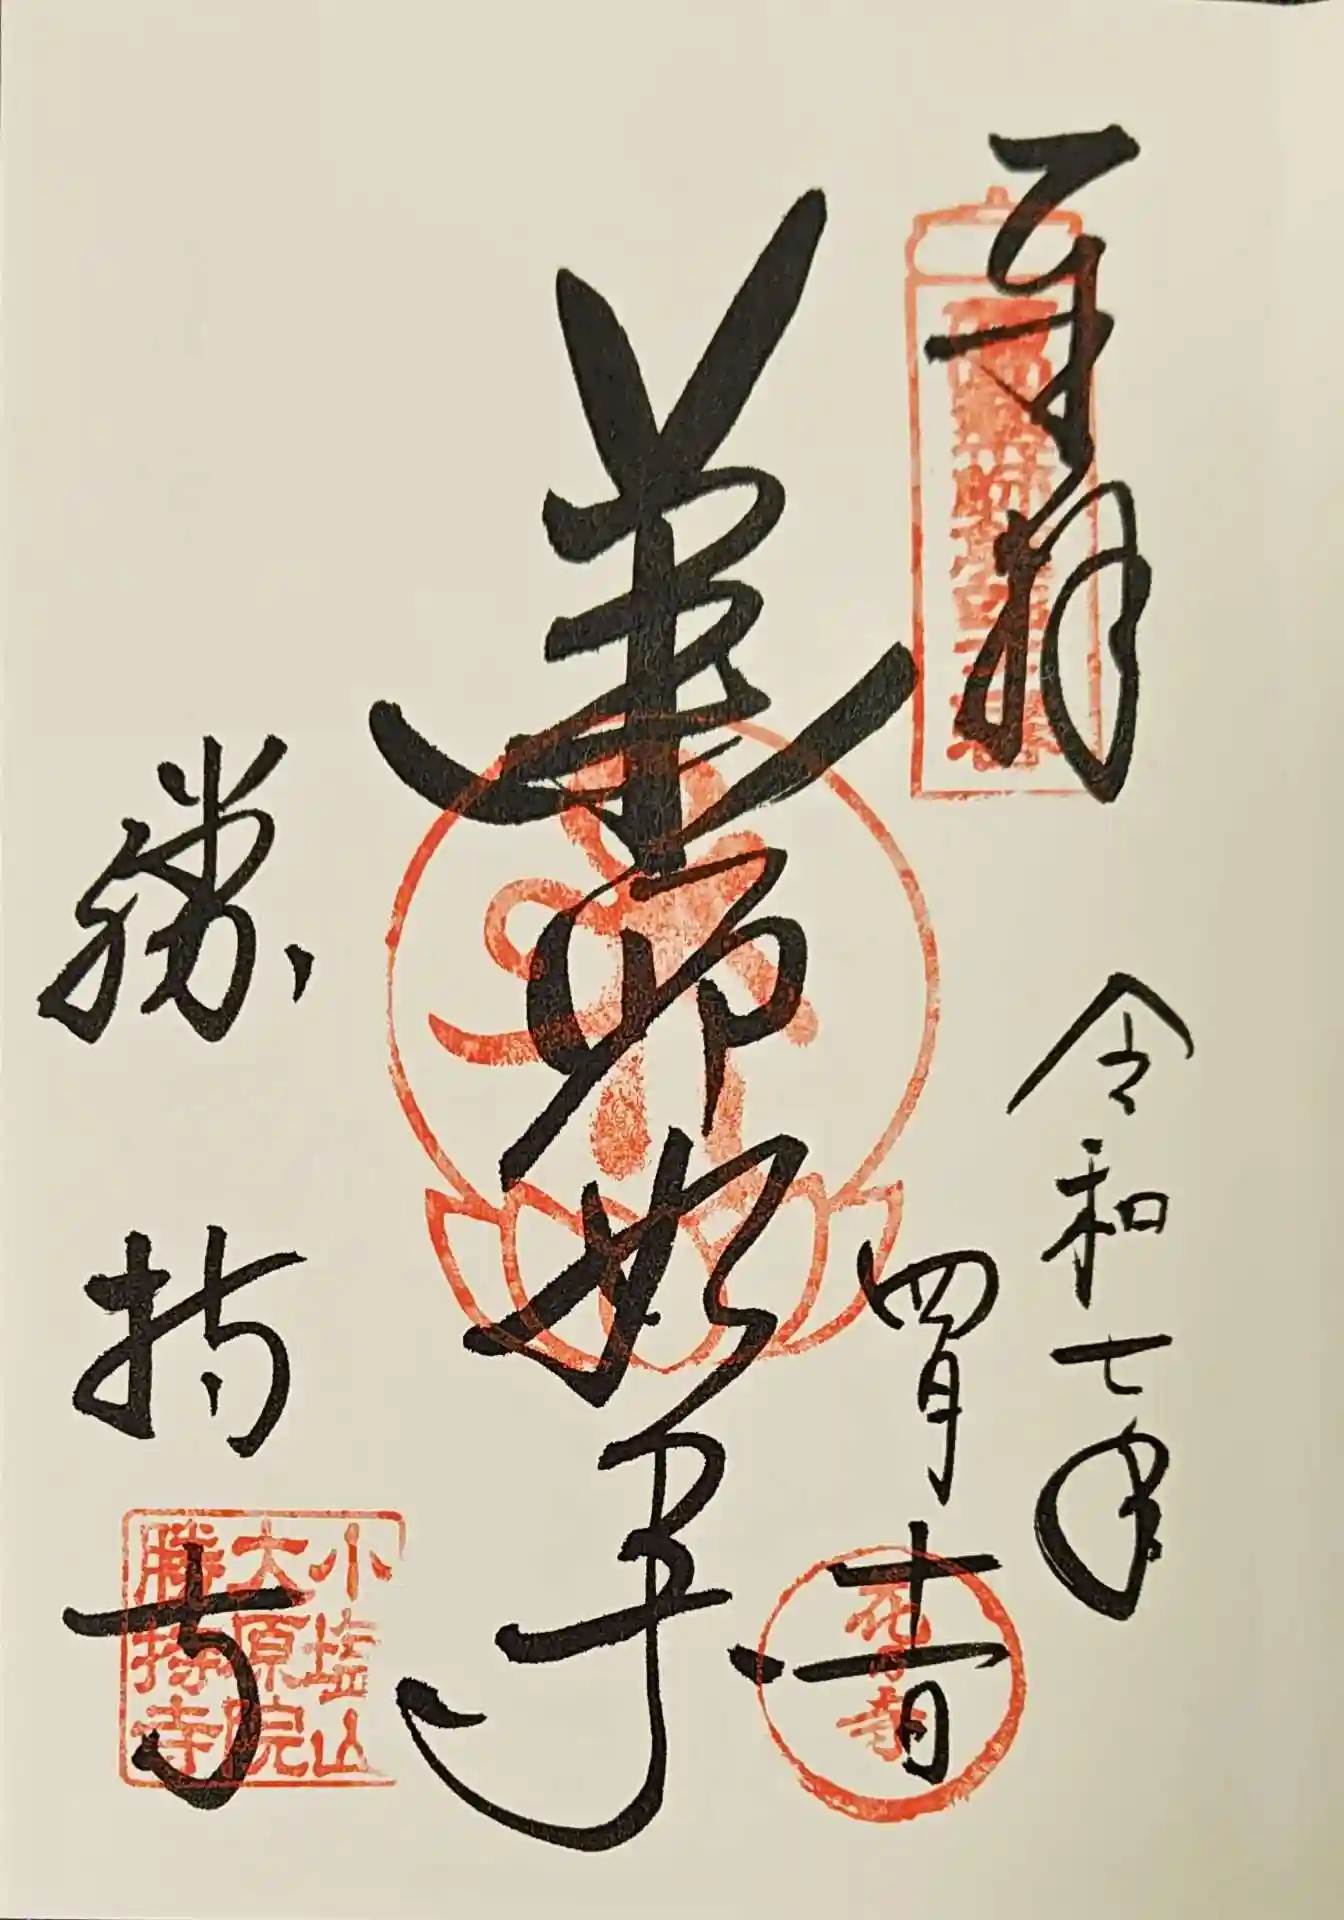 奉拝
令和七年
四月十一日
薬師如来
勝持寺
花の寺
小塩山
大原院
勝持寺